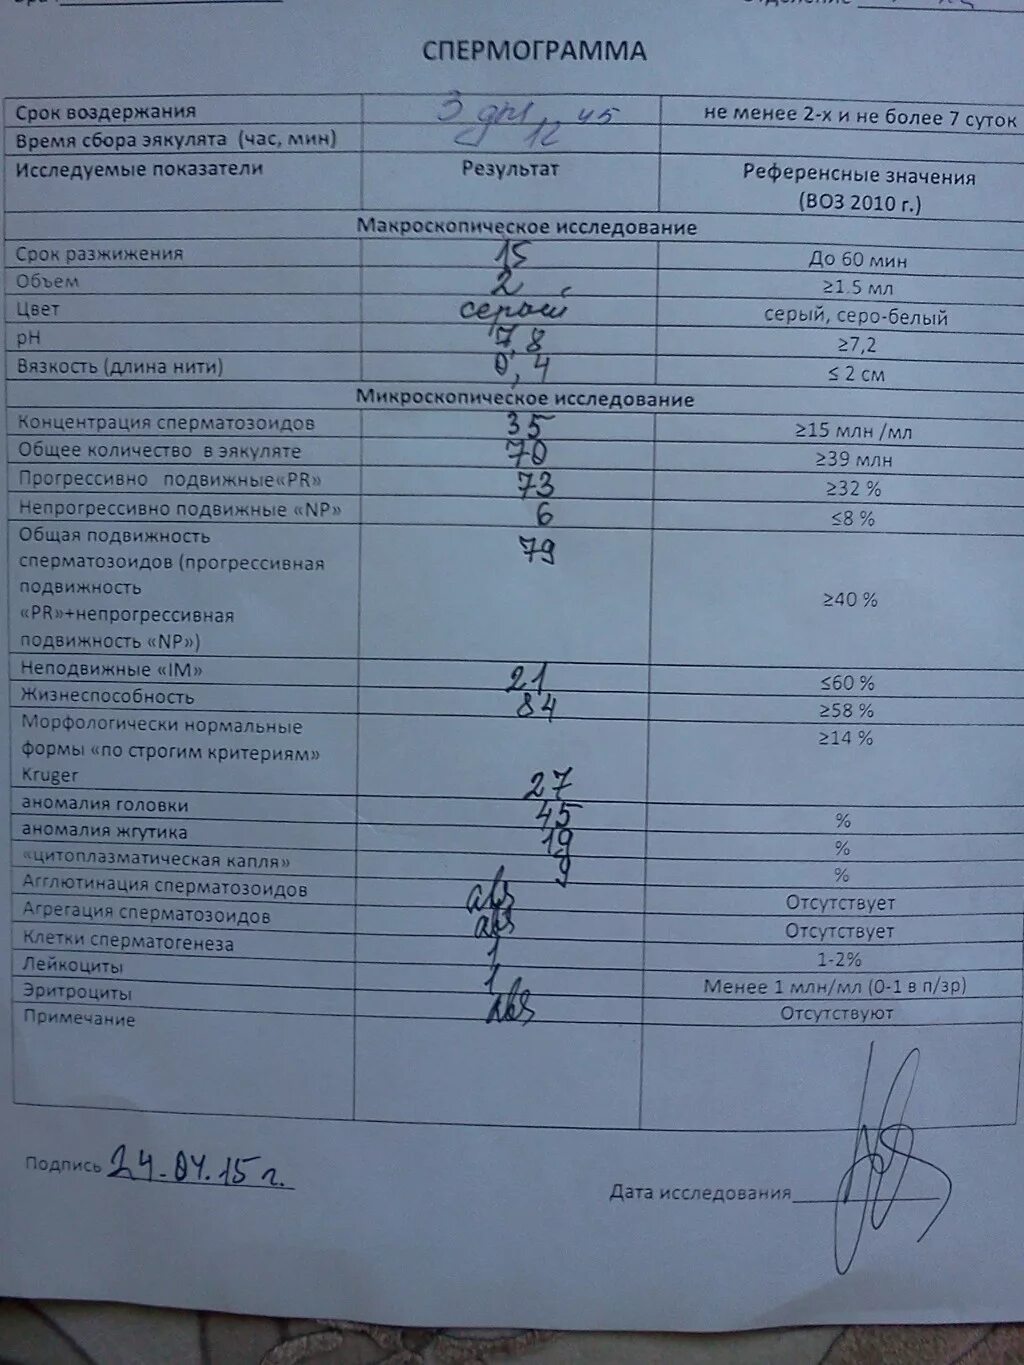 Отделение
СПЕРМОГРАММА
Срок воздержания 3 дня не менее 2-х и не более 7 суток
Время сбора эякулята (час, мин) 12 45
Исследуемые показатели Результат Референсные значения
(ВОЗ 2010 г.)
Макроскопическое исследование
Срок разжижения 15 До 60 мин
Объем 2 ≥1.5 мл
Цвет серый серый, серо-белый
pH 7,8 ≥7,2
Вязкость (длина нити) 0,4 ≤ 2 см
Микроскопическое исследование
Концентрация сперматозоидов 35 ≥15 млн /мл
Общее количество в эякуляте 70 ≥39 млн
Прогрессивно подвижные«PR» 73 ≥32 %
Непрогрессивно подвижные «NP» 6 ≤8 %
Общая подвижность 79
сперматозоидов (прогрессивная
подвижность ≥40 %
«PR»+непрогрессивная
подвижность «NP»)
Неподвижные «IM» 21 ≤60 %
Жизнеспособность 84 ≥58 %
Морфологически нормальные ≥14 %
формы «по строгим критериям»
Kruger 27
аномалия головки 45 %
аномалия жгутика 19 %
«цитоплазматическая капля» 9 %
Агглютинация сперматозоидов abs Отсутствует
Агрегация сперматозоидов abs Отсутствует
Клетки сперматогенеза 1 1-2%
Лейкоциты 1 Менее 1 млн/мл (0-1 в п/зр)
Эритроциты abs Отсутствуют
Примечание
Подпись 24.04.15 г.
Дата исследования